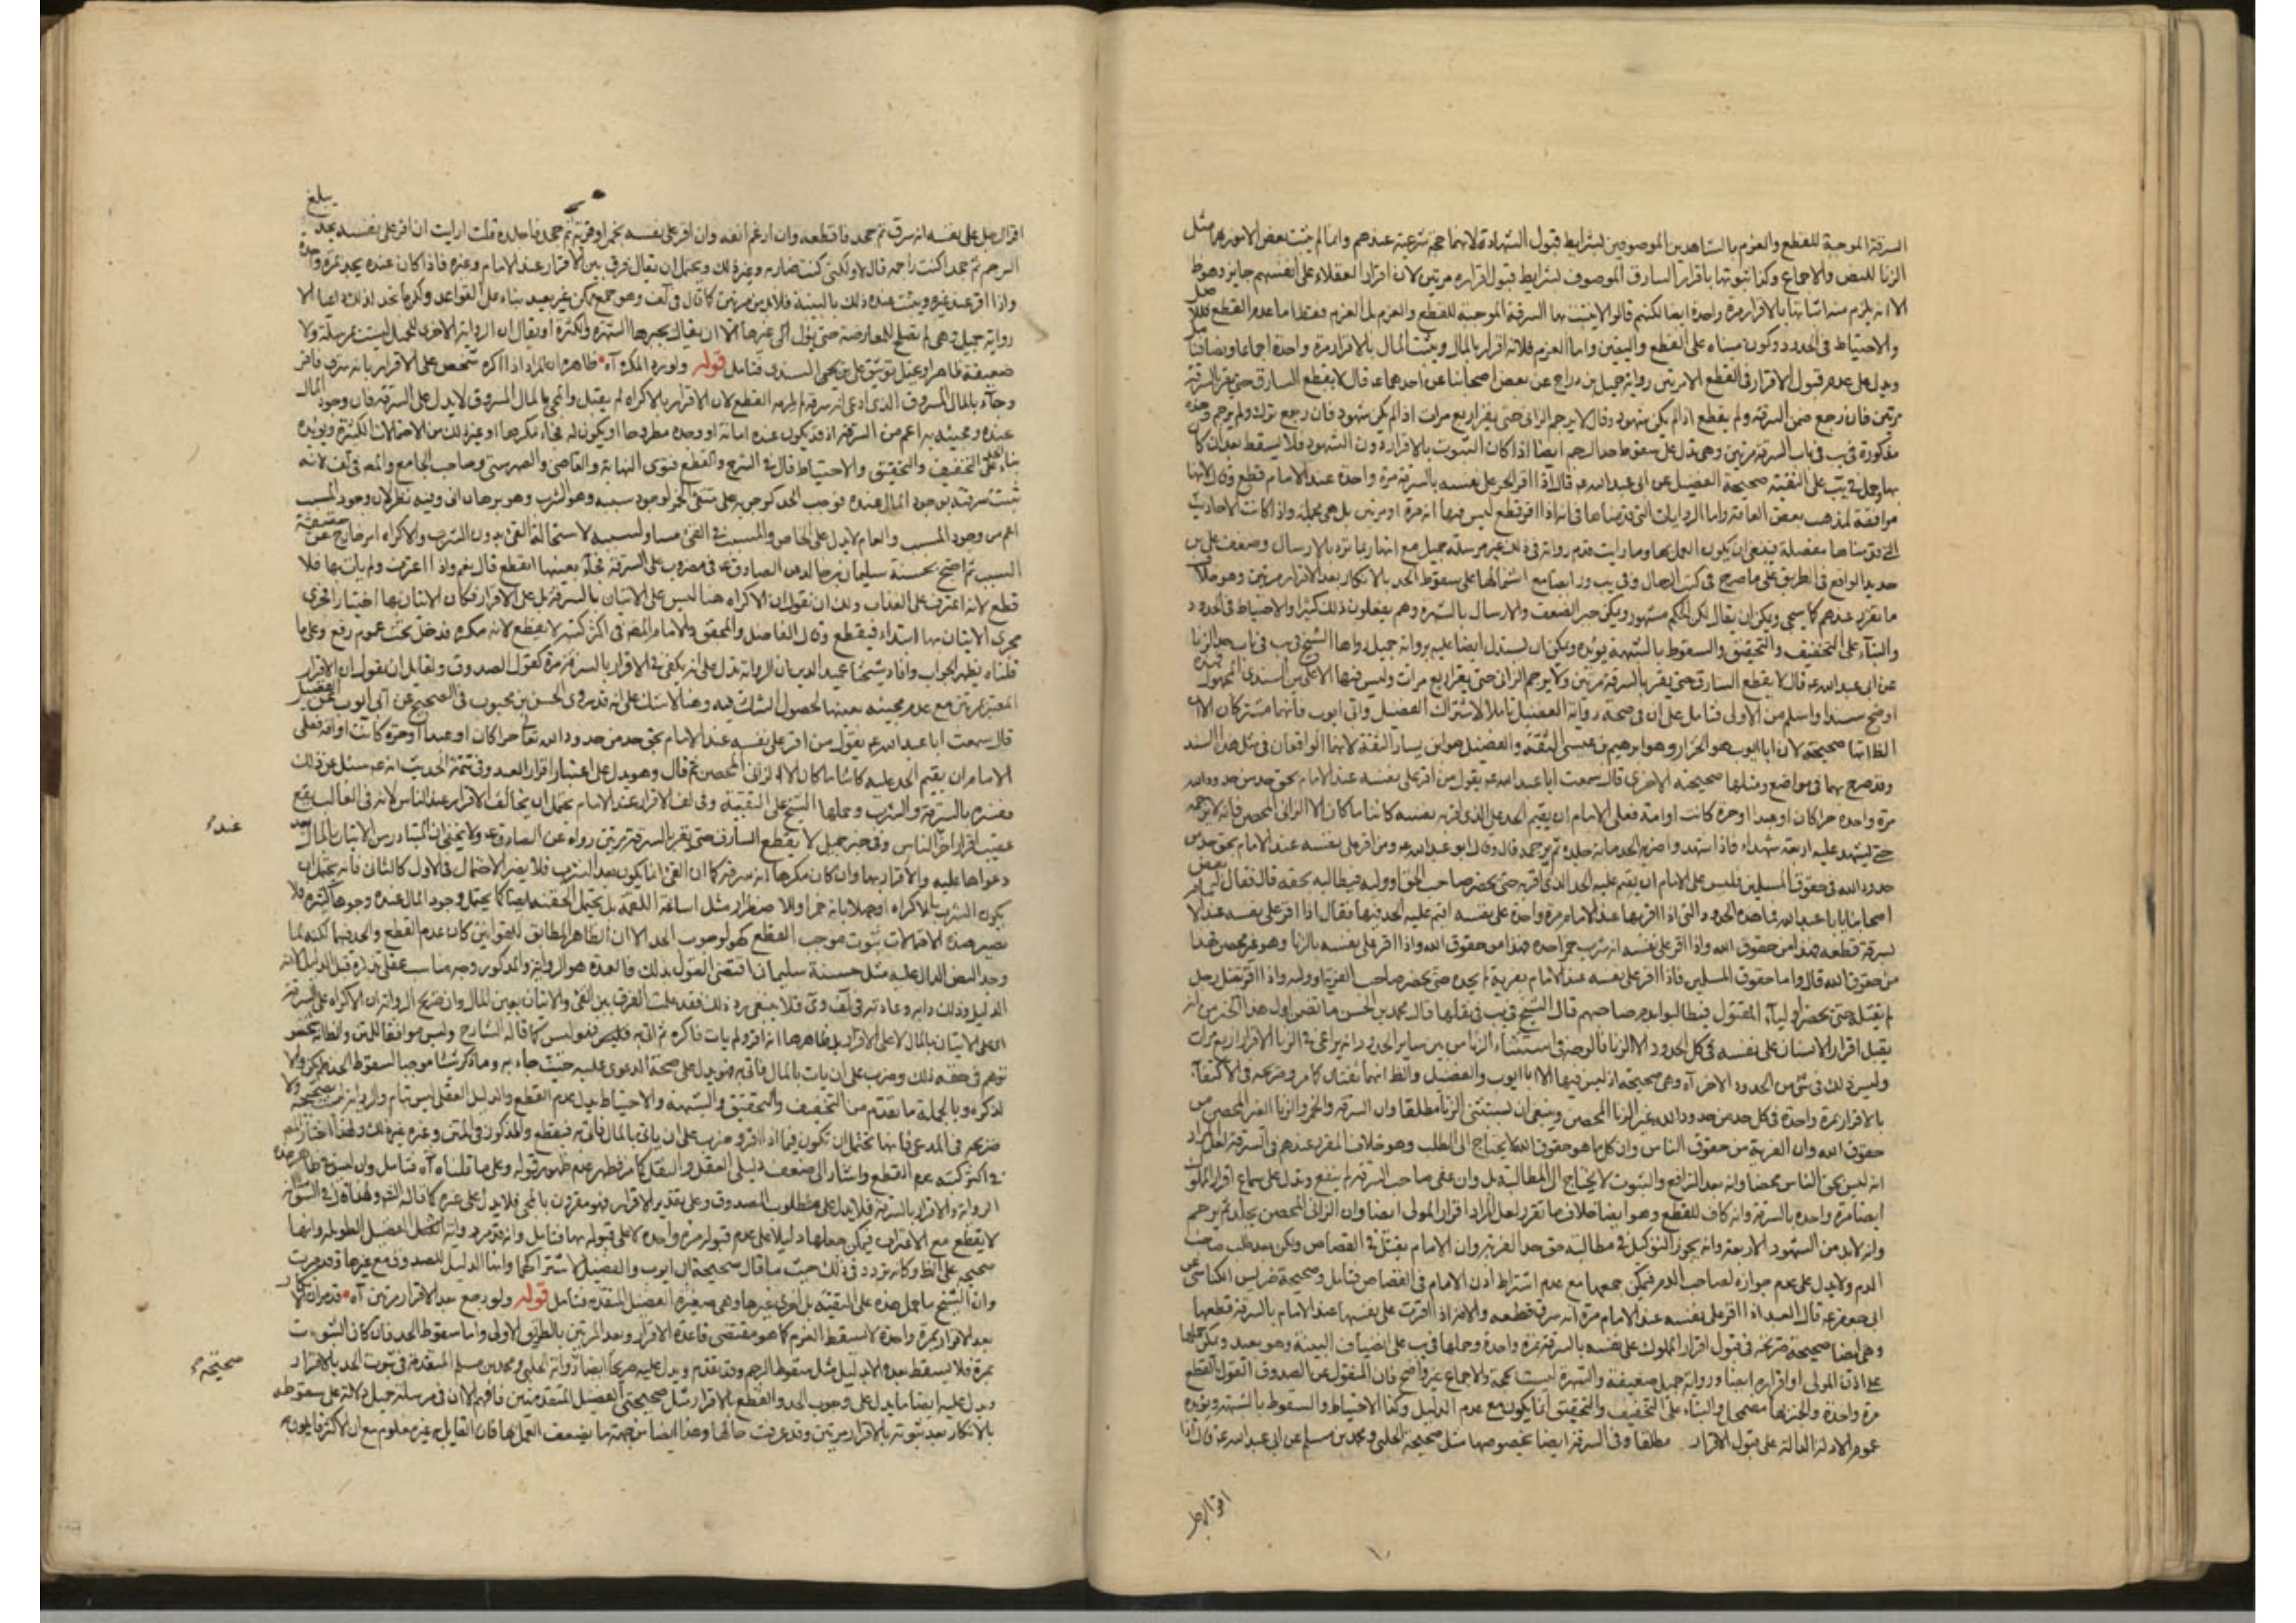 السرقة الموجبة للقطع والغرم بالشاهدين الموصوفين بشرايط قبول الشهادة لانهما حجة شرعية عندهم وانما لم يثبت بعض الامور بهما مثل
الزنا للنص والاجماع وكذا ثبوتها باقرار السارق الموصوف بشرايط قبول اقراره مرتين لان اقرار العقلاء على انفسهم جايز وهو ظ
الا انه يلزم منه اثباتها بالاقرار مرة واحدة ايضا لكنهم قالوا لا يثبت بها السرقة الموجبة للقطع والغرم بل الغرم فقط اما عدم القطع
والاحتياط في الحدود وكون مبناه على القطع واليقين واما الغرم فلانه اقرار بالمال ويثبت المال بالاقرار مرة واحدة اجماعا ونصا
ويدل على عدم قبول الاقرار في القطع الا مرتين رواية جميل بن دراج عن بعض اصحابنا عن احدهما ع قال لا يقطع السارق حتى يقر بالسرقة
مرتين فان رجع ضمن السرقة ولم يقطع اذا لم يكن شهود وقال لا يرجم الزاني حتى يقر اربع مرات اذا لم يكن شهود فان رجع ترك ولم يرجم
مذكورة في يب في باب السرقة مرتين وهي تدل على سقوط حد الرجم ايضا اذا كان الثبوت بالاقرار دون الشهود فلا يسقط بعد ان كان
بها وحمل في يب على التقية صحيحة الفضيل عن ابي عبد الله ع قال اذا اقر الحر على نفسه بالسرقة مرة واحدة عند الامام قطع وقال لانها
موافقة لمذهب بعض العامة واما الروايات التي قدمناها في انه اذا اقر قطع ليس فيها انه مرة او مرتين بل هي مجملة واذا كانت الاحاديث
التي قدمناها مفصلة فينبغي ان يكون العمل بها وما رايت قدم رواية في ذلك غير مرسلة جميل مع انها ربما ترد بالارسال وضعف علي بن
حديد الواقع في الطريق على ما صرح في كتب الرجال وفي يب ور ايضا مع اشتمالها على سقوط الحد بالانكار بعد الاقرار مرتين وهو خلاف
ما تقرر عندهم كما سيجي ويمكن ان يقال لكن الحكم مشهور ويمكن جبر الضعف والارسال بالشهرة وهم يفعلون ذلك كثيرا والاحتياط في الحدود
والبناء على التخفيف والتحقيق والسقوط بالشبهة يؤيده ويمكن ان يستدل ايضا عليه برواية جميل رواها الشيخ في يب في باب حد الزنا
عن ابي عبد الله ع قال لا يقطع السارق حتى يقر بالسرقة مرتين ولا يرجم الزاني حتى يقر اربع مرات وليس فيها الا علي بن السندي المجهول
اوضح سندا واسلم من الاولى فتامل على ان في صحة رواية الفضيل تاملا لاشتراك الفضيل وابي ايوب فانهما مشتركان الا ان
الظ انها صحيحة لان ابا ايوب هو الخزاز وهو ابرهيم بن عيسى الثقة والفضيل هو ابن يسار الثقة لانهما الواقعان في مثل هذا السند
وقد صرح بهما في مواضع ومثلها صحيحته الاخرى قال سمعت ابا عبد الله ع يقول من اقر على نفسه عند الامام بحق حد من حدود الله
مرة واحدة حرا كان او عبدا او حرة كانت او امة فعلى الامام ان يقيم الحد على الذي اقر به على نفسه كائنا ما كان الا الزاني المحصن فانه لا يرجمه
حتى يشهد عليه اربعة شهداء فاذا شهدوا ضربه الحد مائة جلدة ثم يرجمه قال وقال ابو عبد الله ع ومن اقر على نفسه عند الامام بحق حد من
حدود الله في حقوق المسلمين فليس على الامام ان يقيم عليه الحد الذي اقر به حتى يحضر صاحب الحق او وليه فيطالبه بحقه قال فقال له بعض
اصحابنا يا ابا عبد الله فما هذه الحدود التي اذا اقر بها عند الامام مرة واحدة على نفسه اقيم عليه الحد فيها فقال اذا اقر على نفسه عند الامام
بسرقة قطعه فهذا من حقوق الله واذا اقر على نفسه انه شرب خمرا حده فهذا من حقوق الله واذا اقر على نفسه بالزنا وهو غير محصن فهذا
من حقوق الله قال واما حقوق المسلمين فاذا اقر على نفسه عند الامام بفرية لم يحده حتى يحضر صاحب الفرية او وليه واذا اقر بقتل رجل
لم يقتله حتى يحضر اولياء المقتول فيطالبوا بدم صاحبهم قال الشيخ في يب في نقلها قال محمد بن الحسن ما تضمن اول هذا الخبر من انه
يقبل اقرار الانسان على نفسه في كل الحدود الا الزنا فالوجه في استثناء الزنا من بين ساير الحدود انه يراعى في الزنا الاقرار اربع مرات
وليس ذلك في شي من الحدود الاخر آه وهي صحيحة اذ ليس فيها الا ابا ايوب والفضيل والظ انهما ثقتان كما مر وصريحه في الاكتفاء
بالاقرار مرة واحدة في كل حد من حدود الله غير الزنا المحصن وينبغي ان يستثنى الزنا مطلقا وان السرقة والخمر والزنا الغير المحصن من
حقوق الله وان الفرية من حقوق الناس وان كل ما هو حقوق الله لا يحتاج الى الطلب وهو خلاف المقرر عندهم في السرقة لعل المراد
انه ليس بحق الناس محضا وانه بعد الترافع والثبوت لا يحتاج الى المطالبة بل وان عفى صاحب السرقة لم ينفع ويدل على سماع اقرار المملوك
ايضا مرة واحدة بالسرقة وانه كاف للقطع وهو ايضا خلاف ما تقرر لعل المراد اقرار المولى ايضا وان الزاني المحصن يجلد ثم يرجم
وانه لابد من الشهود الاربعة وانه يجوز التوكيل في مطالبة حق حد الفرية وان الامام يقتل في القصاص ولكن بعد طلب صاحب
الدم ولا يدل على عدم جوازه لصاحب الدم فيمكن جمعها مع عدم اشتراط اذن الامام في القصاص فتامل وصحيحة ضريس الكناسي عن
ابي جعفر ع قال العبد اذا اقر على نفسه عند الامام مرة انه سرق قطعه والامة اذا اقرت على نفسها عند الامام بالسرقة قطعها
وهي ايضا صحيحة صريحة في قبول اقرار المملوك على نفسه بالسرقة مرة واحدة وحملها في يب على انضياف البينة وهو بعيد ويمكن حملها
على اذن المولى او اقراره ايضا ورواية جميل ضعيفة والشهرة ليست بحجة والاجماع غير واضح فان المنقول عن الصدوق القول بالقطع
مرة واحدة والجبر بها مضمحل والبناء على التخفيف والتحقيق انما يكون مع عدم الدليل وكذا الاحتياط والسقوط بالشبهة ويؤيده
عموم الادلة الدالة على قبول الاقرار مطلقا وفي السرقة ايضا بخصوصها مثل صحيحة الحلبي ومحمد بن مسلم عن ابي عبد الله ع قال اذا
اقر الرجل
يبلغ
اقر الرجل على نفسه انه سرق ثم جحد فاقطعه وان ارغم انفه وان اقر على نفسه بخمر او فرية ثم جحد فاجلده قلت ارايت ان اقر على نفسه بحد
الرجم ثم جحد اكنت راجمه قال لا ولكني كنت ضاربه وغير ذلك ويحتمل ان يقال فرق بين الاقرار عند الامام وغيره فاذا كان عنده يحد بمرة واحدة
واذا اقر عند غيره ويثبت عنده ذلك بالبينة فلابد من مرتين كما قال في لف وهو جمع ممكن غير بعيد بناء على القواعد
رواية جميل وهي لم تصلح للمعارضة حتى يؤل الى غيرها الا ان يقال يجبرها الشهرة والكثرة او يقال ان الرواية الاخرى لجميل ليست بمرسلة ولا
ضعيفة ظاهرا ويحتمل توثيق علي بن السندي فتامل قوله ولو رد المكره آه ظاهره ان المراد اذا اكره شخص على الاقرار بانه سرق فاقر
وجاء بالمال المسروق الذي ادعى انه سرقه لم يلزمه القطع لان الاقرار بالاكراه لم يقبل والمجي بالمال المسروق لا يدل على السرقة فان وجود المال
عنده ومجيئه به اعم من السرقة اذ قد يكون عنده امانة او وجده مطروحا او يكون له فجاء مكرها او غير ذلك من الاحتمالات الكثيرة ويؤيده
بناء الحد على التخفيف والتحقيق والاحتياط قال في الشرح والقطع فتوى النهاية والقاضي والصهرشتي وصاحب الجامع والمصـ في لف لانه
ثبتت سرقته بوجود المال عنده فوجب الحد كوجوبه على متقي الخمر لوجود سببه وهو الشرب وهو برهان اني وفيه نظر لان وجود المسبب
اعم من وجود السبب والعام لا يدل على الخاص والمسبب في القئ مساو لسببه لاستحالة القئ بدون الشرب والاكراه امر خارج عن حقيقة
السبب ثم احتج بحسنة سليمان بن خالد عن الصادق ع في مضروب على السرقة فجاء بعينها ايقطع قال نعم واذا اعترف ولم يات بها فلا
قطع لانه اعترف على العذاب ولك ان تقول ان الاكراه هنا ليس على الاتيان بالسرقة بل على الاقرار فكان الاتيان بها اختيارا
مجرى الاتيان بها ابتداء فيقطع وقال الفاضل والمحقق والامام المصـ في اكثر كتبه لا يقطع لانه مكره فدخل تحت عموم رفع وعلى ما
قلناه يظهر الجواب وافاد شيخنا عميد الدين ان الرواية تدل على انه يكفي في الاقرار بالسرقة مرة كقول الصدوق ولقايل ان يقول ان الاقرار
المعتبر مرتين مع عدم مجيئه بعينها لحصول الشك فيه وهنا لا شك على انه قد روى الحسن بن محبوب في الصحيح عن ابي ايوب عن الفضيل
قال سمعت ابا عبد الله ع يقول من اقر على نفسه عند الامام بحق حد من حدود الله تعالى حرا كان او عبدا او حرة كانت او امة فعلى
الامام ان يقيم الحد عليه كائنا ما كان الا الزاني المحصن ثم قال وهو يدل على اعتبار اقرار العبد وفي تتمة الحديث انه ع سئل عن ذلك
ففسره بالسرقة والشرب وحملها الشيخ على التقية وفي لف الاقرار عند الامام يحتمل ان يخالف الاقرار عند الناس لانه في الغالب يقع
عقيب اقرار اخر الناس وفي خبر جميل لا يقطع السارق حتى يقر بالسرقة مرتين رواه عن الصادق ع ولا يخفى ان المتبادر من الاتيان بالمال بعد
دعواها عليه والاقرار بها وان كان مكرها انه سرقه كما ان القئ انما يكون بعد الشرب فلا يضر الاحتمال في الاول كالثاني فانه يحتمل ان
يكون الشرب بالاكراه او جهلا بانه خمر او للاضطرار مثل اساغة اللقمة بل يحتمل الحقنة ايضا كما يحتمل وجود المال عنده وجوها كثيرة فلا
يضر هذه الاحتمالات بثبوت موجب القطع كهو لوجوب الحد الا ان الظاهر المطابق للقوانين كان عدم القطع والحد فيهما لكنه لما
وجد النص الدال عليه مثل حسنة سليمان اقتضى القول بذلك فالعمدة هو الرواية والمذكور وجه مناسب عقلي
الدليل وذلك دابه وعادته في لف فلا ينبغي رد ذلك فقد علمت الفرق بين القئ والاتيان بعين المال وان صريح الرواية ان الاكراه على السرقة
اي على الاتيان بالمال لا على الاقرار بل ظاهرها انه اقر ولم يات فاكره ثم اتى به فليس كما قاله الشارح
توهم في حقه ذلك وضرب على ان يات بالمال فاتى به فهو يدل على صحة الدعوى عليه حيث جاء به وما ذكر شيئا موجبا لسقوط الحد
لذكره وبالجملة ما تقدم من التخفيف والتحقيق والشبهة والاحتياط يدل بعدم القطع والدليل العقلي ليس بتام والرواية ليست صحيحة ولا
صريحة في المدعى فانها تحتمل ان تكون فيما اذا اقر وضرب على ان ياتي بالمال فاتى به فيقطع والمذكور في المتن وغيره غير ذلك ولهذا اختار المصـ
في اكثر كتبه عدم القطع واشار الى ضعف دليلي العقل والنقل كما مر فظهر عدم ظهور قوله وعلى ما قلناه آه فتامل وان ليس في ظاهر هذه
الرواية الاقرار بالسرقة فلا يدل على مطلوب الصدوق وعلى تقدير الاقرار فهو مقرون بالمجي فلا يدل على غيره كما قاله الشـ
لا يقطع مع الاعتراف فيمكن جعلها دليلا على عدم قبوله مرة واحدة لا على قبوله بها فتامل وانه قد مر رواية الفضيل الطويلة وانها
صحيحة على الظ وكانه تردد في ذلك حيث ما قال صحيحة ابي ايوب والفضيل لاشتراكهما وانها الدليل للصدوق مع غيرها وقد مرت
وان الشيخ ما حمل هذه على التقية بل اخرى غيرها وهي صغيرة الفضيل المتقدمة فتامل قوله ولو رجع بعد الاقرار مرتين آه قد مر ان الانكار
بعد الاقرار بمرة واحدة لا يسقط الغرم كما هو مقتضى قاعدة الاقرار وبعد المرتين بالطريق الاولى واما سقوط الحد فان كان الثبوت
بمرة فلا يسقط بعده الا بدليل مثل سقوط الرجم وقد تقدم ويدل عليه صريحا ايضا رواية الحلبي ومحمد بن مسلم المتقدمة في ثبوت الحد بالاقرار
ويدل عليه ايضا ما يدل على وجوب الحد والقطع بالاقرار مثل صحيحتي الفضيل المتقدمتين فافهم الا ان في مرسلة جميل دلالة على سقوطه
بالانكار بعد ثبوته بالاقرار مرتين وقد عرفت حالها وهذا ايضا من جهة ما يضعف العمل بها فان القايل به غير معلوم مع ان الاكثر قايلون به
عنده
صحيحة